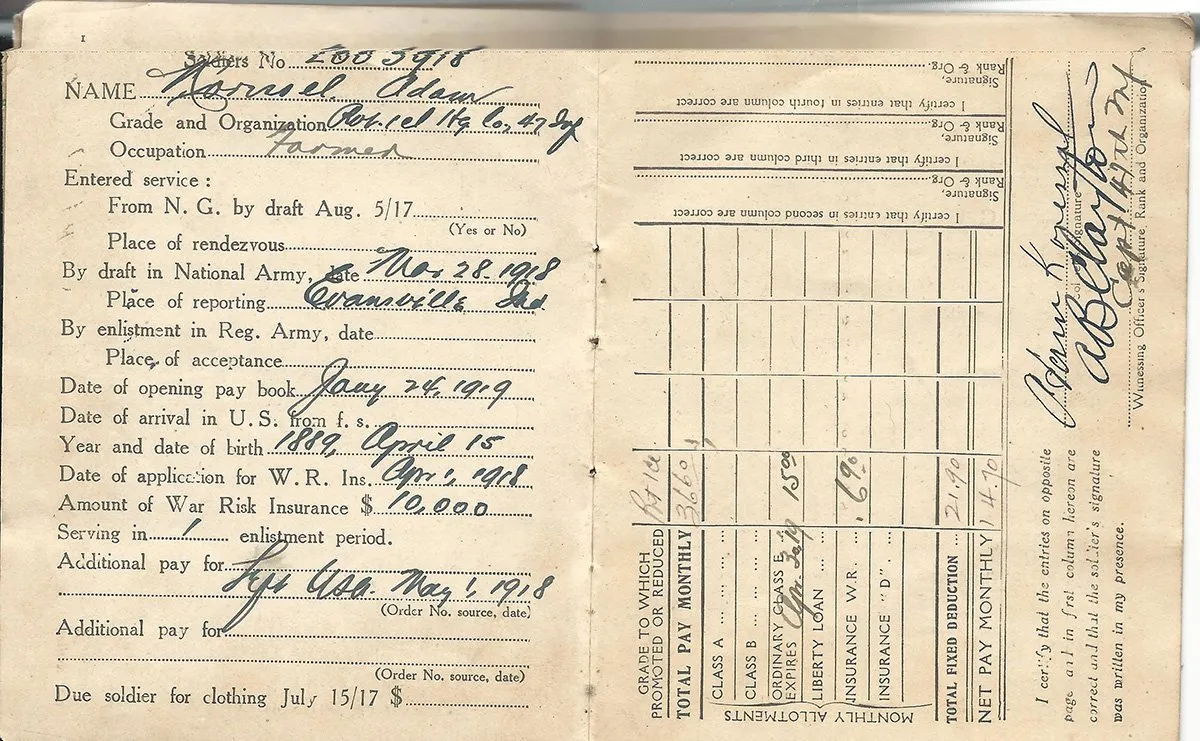 1
Soldiers No 2005918
NAME Kornoel Adam
Grade and Organization Pvt. 1cl Hq Co, 47 Inf
Occupation Farmer
Entered service :
From N. G. by draft Aug. 5/17
(Yes or No)
Place of rendezvous
By draft in National Army, date Mar 28-1918
Place of reporting Evansville Ind.
By enlistment in Reg. Army, date
Place of acceptance
Date of opening pay book Jany 24, 1919
Date of arrival in U. S. from f. s.
Year and date of birth 1889, April 15
Date of application for W. R. Ins. Apr 1, 1918
Amount of War Risk Insurance $ 10,000
Serving in 1 enlistment period.
Additional pay for
Left USA. May 1, 1918
(Order No. source, date)
Additional pay for
(Order No. source, date)
Due soldier for clothing July 15/17 $
GRADE TO WHICH
PROMOTED OR REDUCED Pvt 1cl
TOTAL PAY MONTHLY 3660
MONTHLY ALLOTMENTS
CLASS A ... ... ...
CLASS B ... ... ...
ORDINARY CLASS E 15 00
EXPIRES
LIBERTY LOAN ...
INSURANCE W.R. ... 6 90
INSURANCE "D" ...
TOTAL FIXED DEDUCTION ... 21.90
NET PAY MONTHLY 14.70
I certify that entries in second column are correct
Signature,
Rank & Org.
I certify that entries in third column are correct
Signature,
Rank & Org.
I certify that entries in fourth column are correct
Signature,
Rank & Org.
I certify that the entries on opposite
page and in first column hereon are
correct and that the soldier's signature
was written in my presence.
Adam
Signature
Capt 47th Inf
Witnessing Officer's Signature Rank and Organization